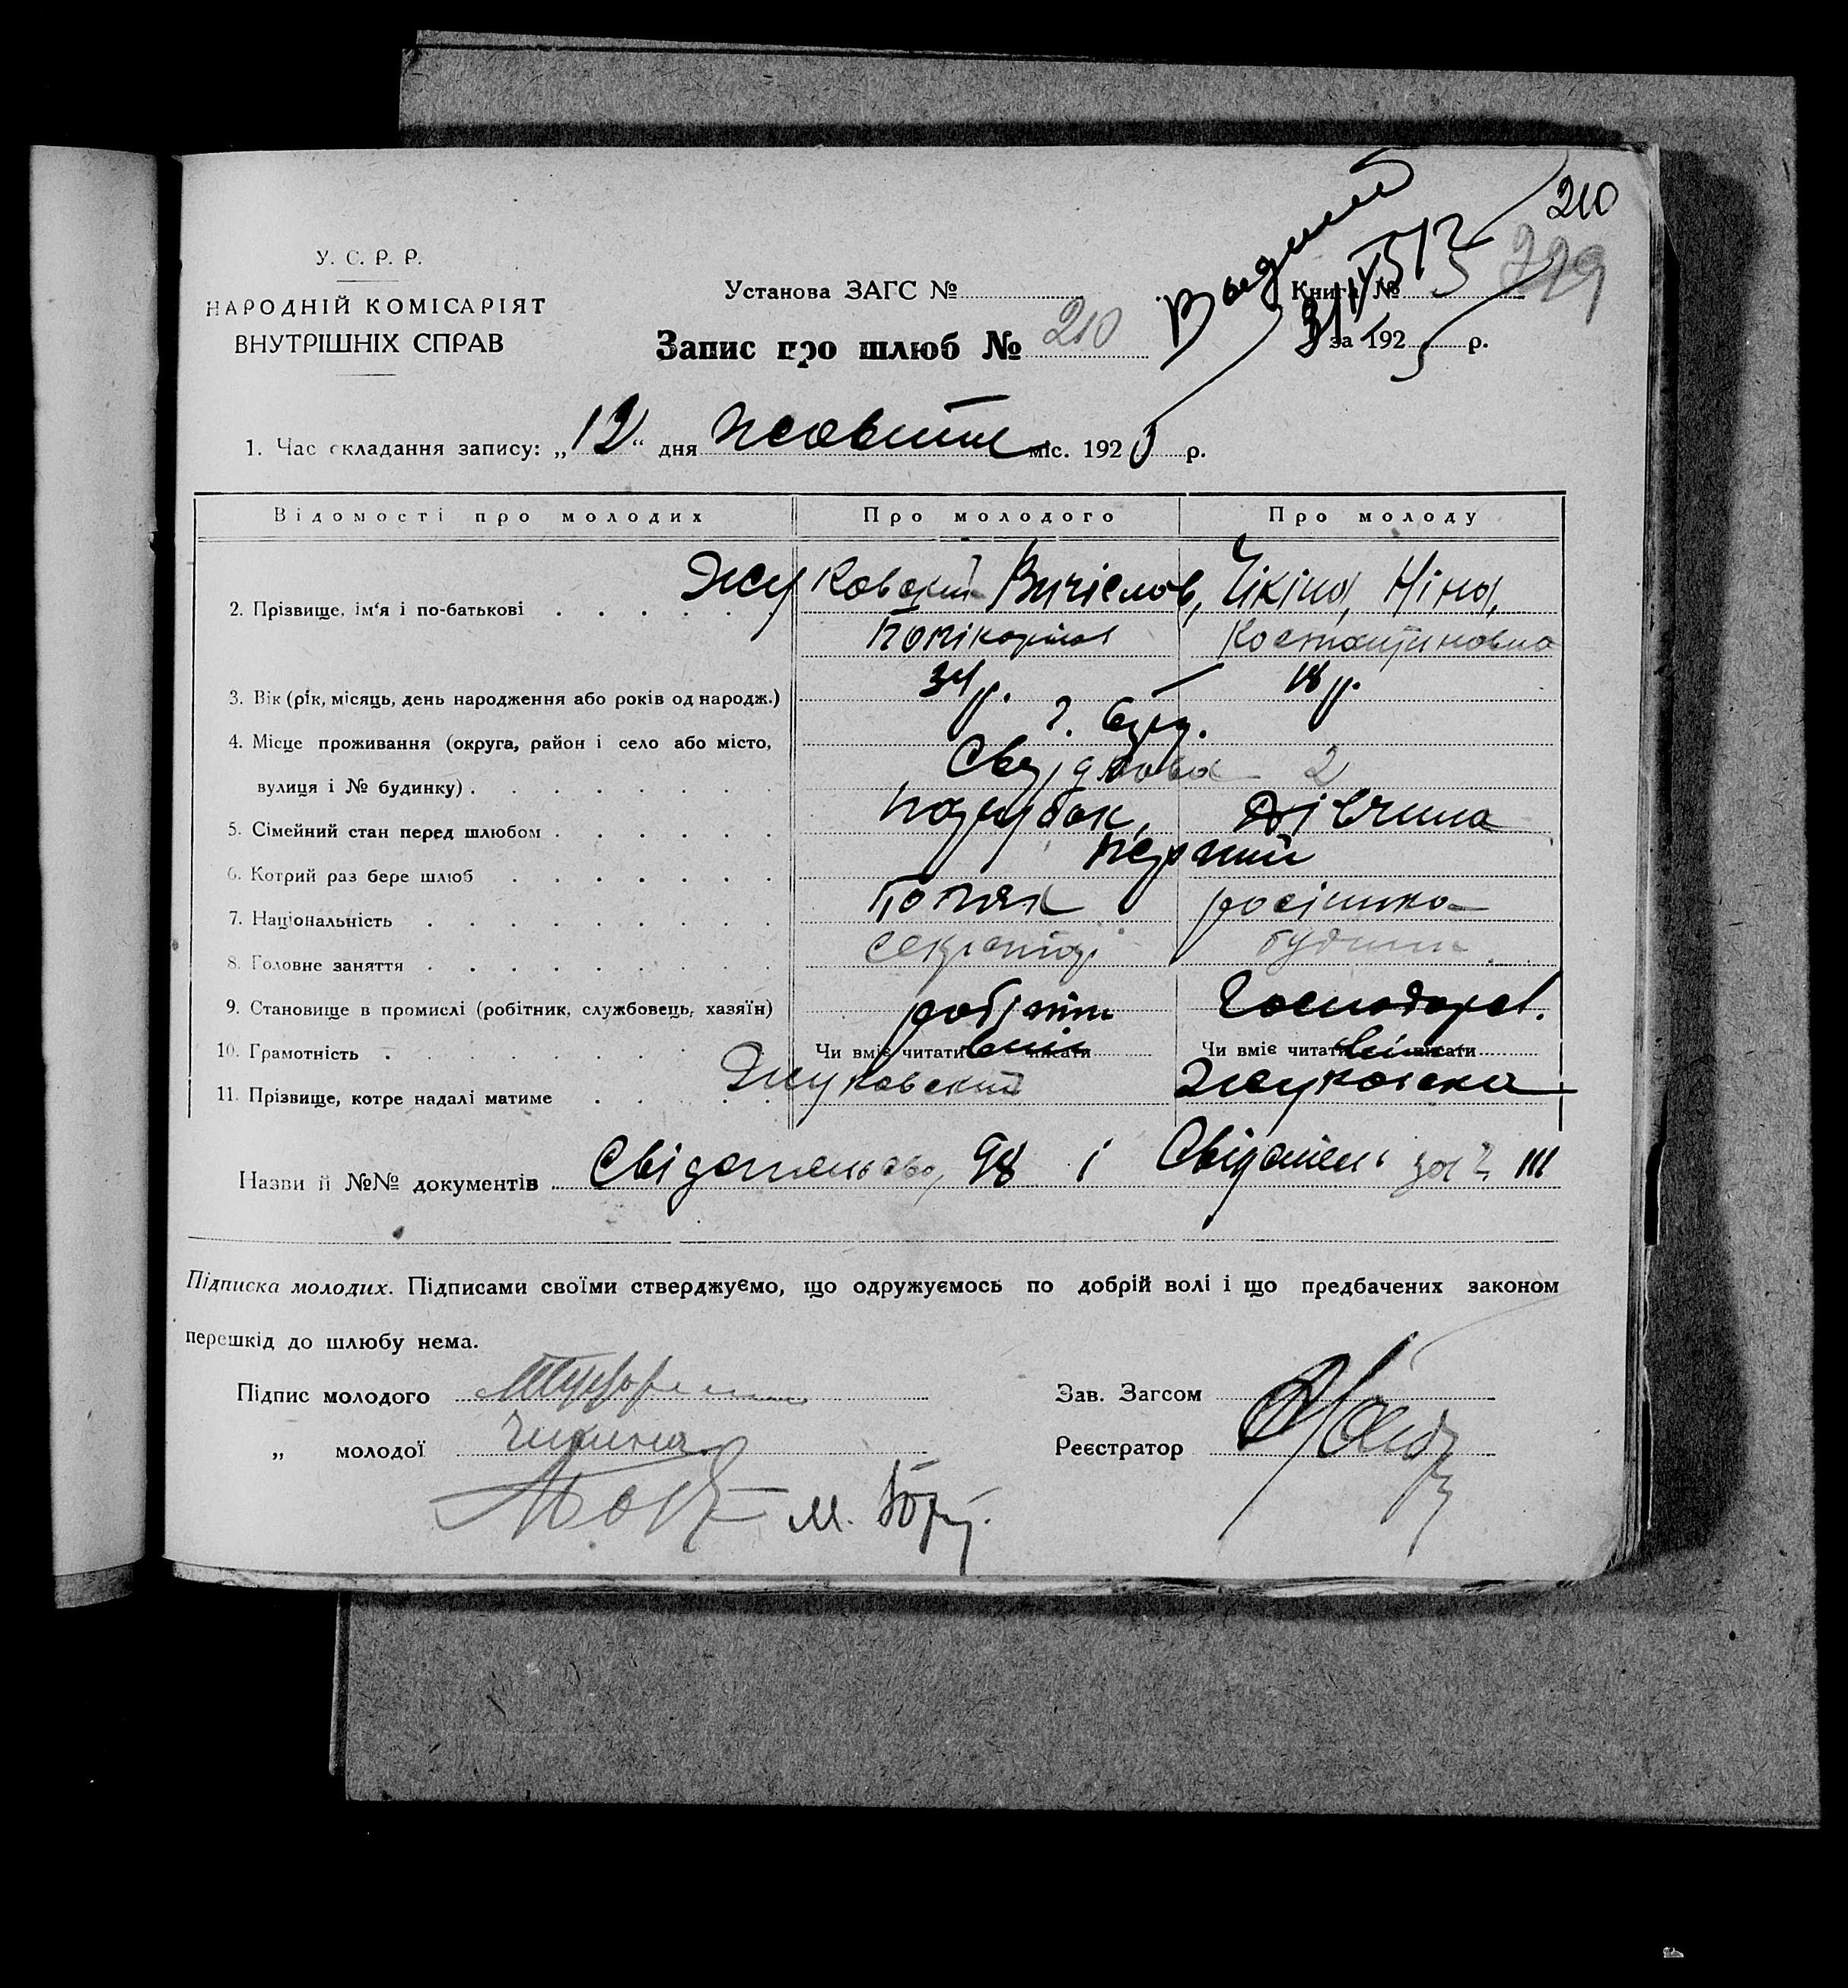 210
У. С. Р. Р.
НАРОДНІЙ КОМІСАРІЯТ
ВНУТРІШНІХ СПРАВ
Установа ЗАГС №
Книга № 5 729
Запис про шлюб № 210
за 192 5 р.
1. Час складання запису: „12“ дня жовтня міс. 192 5 р.
Відомості про молодих Про молодого Про молоду
2. Прізвище, ім‘я і по-батькові Жуковский Чікіна, Ніна,
Костантиновна
3. Вік (рік, місяць, день народження або років од народж.) 34 р. 18 р.
4. Місце проживання (округа, район і село або місто,
вулиця і № будинку) Свердлова 2
5. Сімейний стан перед шлюбом парубок, Дівчина
6. Котрий раз бере шлюб перший
7. Національність поляк росіянка
8. Головне заняття секретар
9. Становище в промислі (робітник, службовець, хазяїн) робітн Господарст.
10. Грамотність Чи вміє читати писати Чи вміє читати писати
11. Прізвище, котре надалі матиме Жуковский Жуковска
Назви й №№ документів Свідотельство, 98 і
Підписка молодих. Підписами своїми стверджуємо, що одружуємось по добрій волі і що предбачених законом
перешкід до шлюбу нема.
Підпис молодого
Зав. Загсом
„ молодої Чикина
Реєстратор